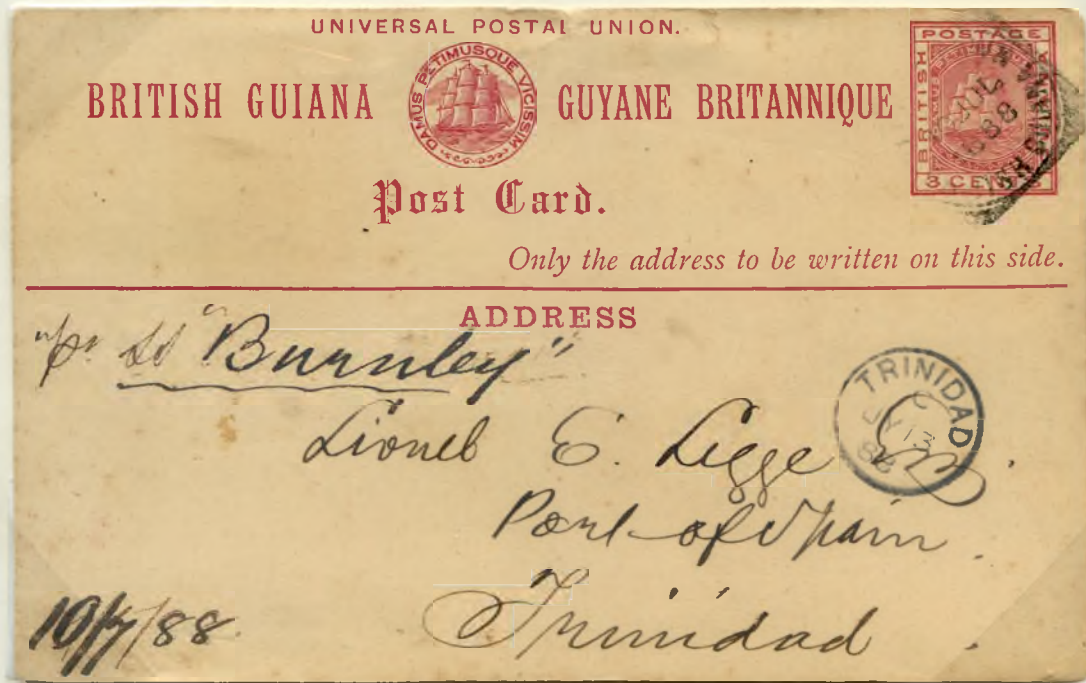 UNIVERSAL POSTAL UNION.
BRITISH GUIANA
DAMUS PETIMUSQUE VICISSIM
GUYANE BRITANNIQUE
POSTAGE
BRITISH
3 CENTS
88
Post Card.
Only the address to be written on this side.
ADDRESS
"pr SS "Burnley"
Lionel E. Legge Esq.
TRINIDAD
13
88
Port of Spain.
Trinidad.
10/7/88.